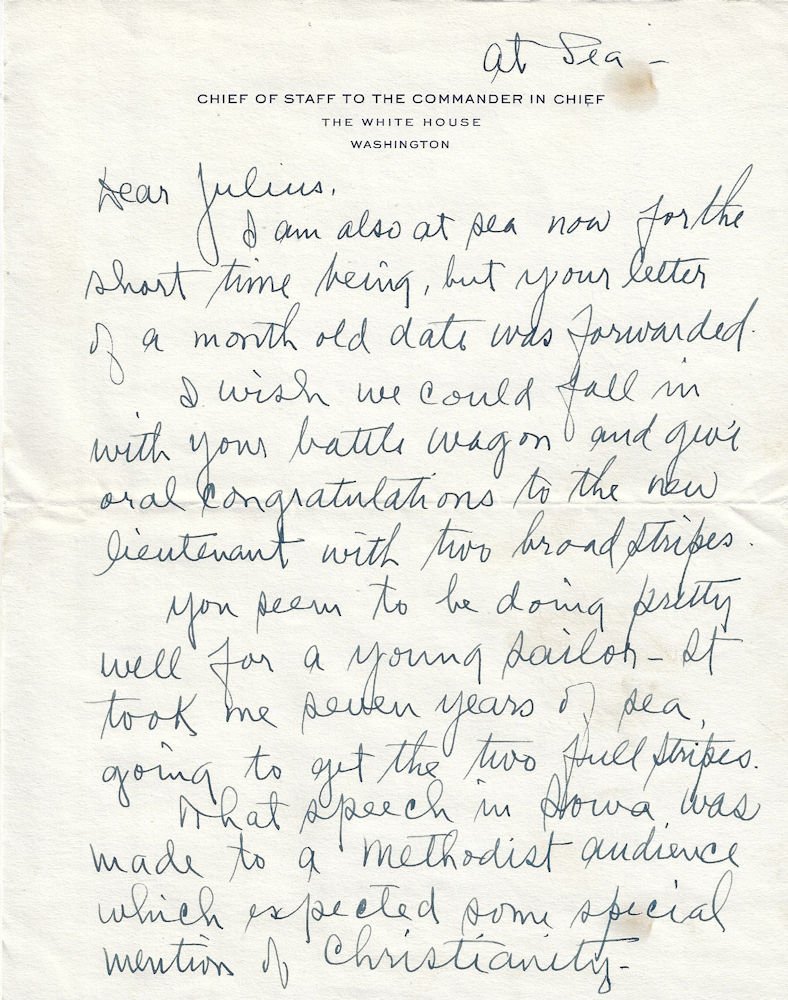 At Sea -
CHIEF OF STAFF TO THE COMMANDER IN CHIEF
THE WHITE HOUSE
WASHINGTON
Dear Julius,
I am also at sea now for the
short time being, but your letter
of a month old date was forwarded.
I wish we could fall in
with your battle wagon and give
oral congratulations to the new
lieutenant with two broad stripes.
You seem to be doing pretty
well for a young sailor - It
took me seven years of sea
going to get the two full stripes.
That speech in Iowa was
made to a Methodist audience
which expected some special
mention of Christianity -